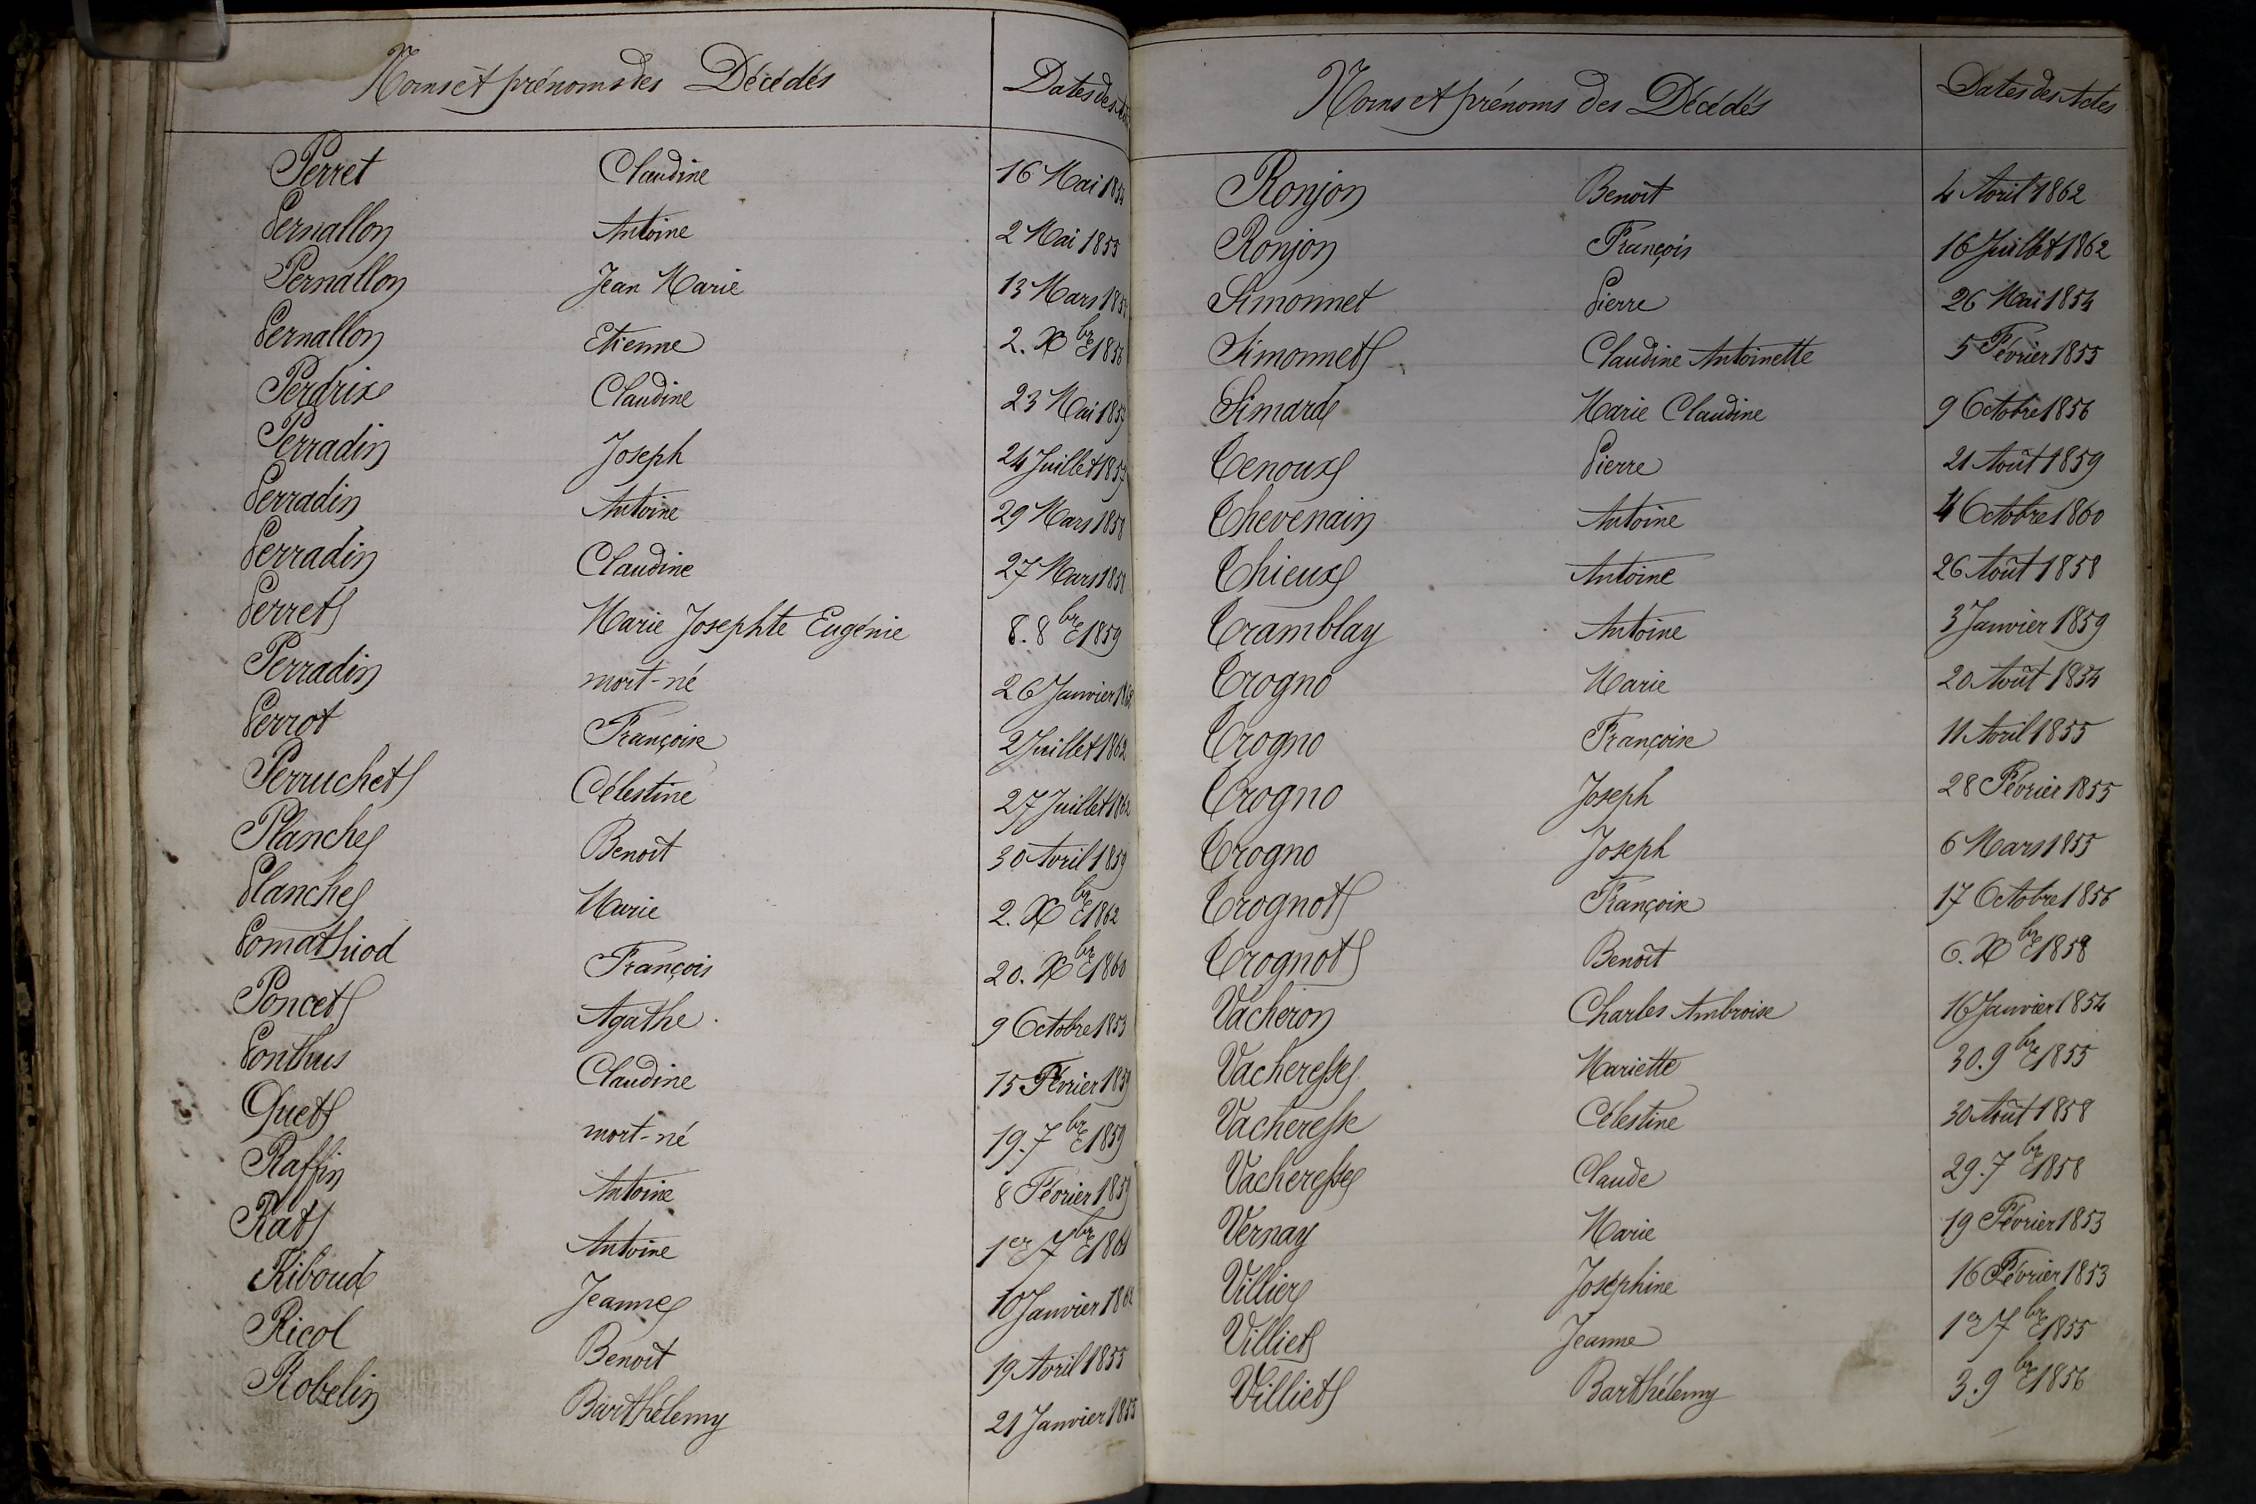 Noms et prénoms des Décédés Dates des
Perret Claudine 16 Mai 1854
Pernallon Antoine 2 Mai 1855
Pernallon Jean Marie 13 Mars
Pernallon Etienne 2. Xbre 1856
Perdrix Claudine 23 Mai
Perradin Joseph 24 Juillet 1857
Perradin Antoine 29 Mars 1858
Perradin Claudine 27 Mars 1858
Perret Marie Josephte Eugénie 8. 8bre 1859
Perradin mort-né 26 Janvier
Perrot Françoise 2 Juillet 1862
Perruchet Célestine 27 Juillet 1862
Planche Benoit 30 Avril 1859
Planche Marie 2. Xbre 1862
Pomathiod François 20. Xbre 1860
Poncet Agathe. 9 Octobre 1853
Ponthus Claudine 15 Février 1859
Quet mort-né 19. 7bre 1859
Raffin Antoine 8 Février 1859
Rat Antoine 1er 7bre 1861
Riboud Jeanne 10 Janvier
Ricol Benoit 19 Avril 1855
Robelin Barthélemy 21 Janvier 1855
Noms et prénoms des Décédés Dates des Actes
Ronjon Benoit 4 Avril 1862
Ronjon François 16 Juillet 1862
Simonnet Pierre 26 Mai 1854
Simonnet Claudine Antoinette 5 Février 1855
Simard Marie Claudine 9 Octobre 1856
Tenoux Pierre 21 Août 1859
Thevenain Antoine 4 Octobre 1860
Thieux Antoine 26 Août 1858
Tramblay Antoine 3 Janvier 1859
Trogno Marie 20 Août 1854
Trogno Françoise 11 Avril 1855
Trogno Joseph 28 Février 1855
Trogno Joseph 6 Mars 1855
Trognot Françoise 17 Octobre 1856
Trognot Benoît 6. Xbre 1858
Vacheron Charles Ambroise 16 Janvier 1854
Vacheresse Mariette 30. 9bre 1855
Vacheresse Célestine 30 Août 1858
Vacheresse Claude 29. 7bre 1858
Vernay Marie 19 Février 1853
Villier Josephine 16 Février 1853
Villiet Jeanne 1er 7bre 1855
Villiet Barthélemy 3. 9bre 1856